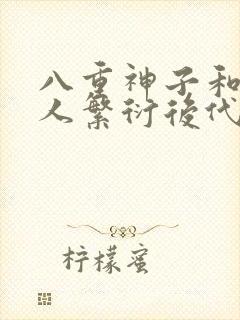 八重神子和
人繁衍後代
柠檬蜜